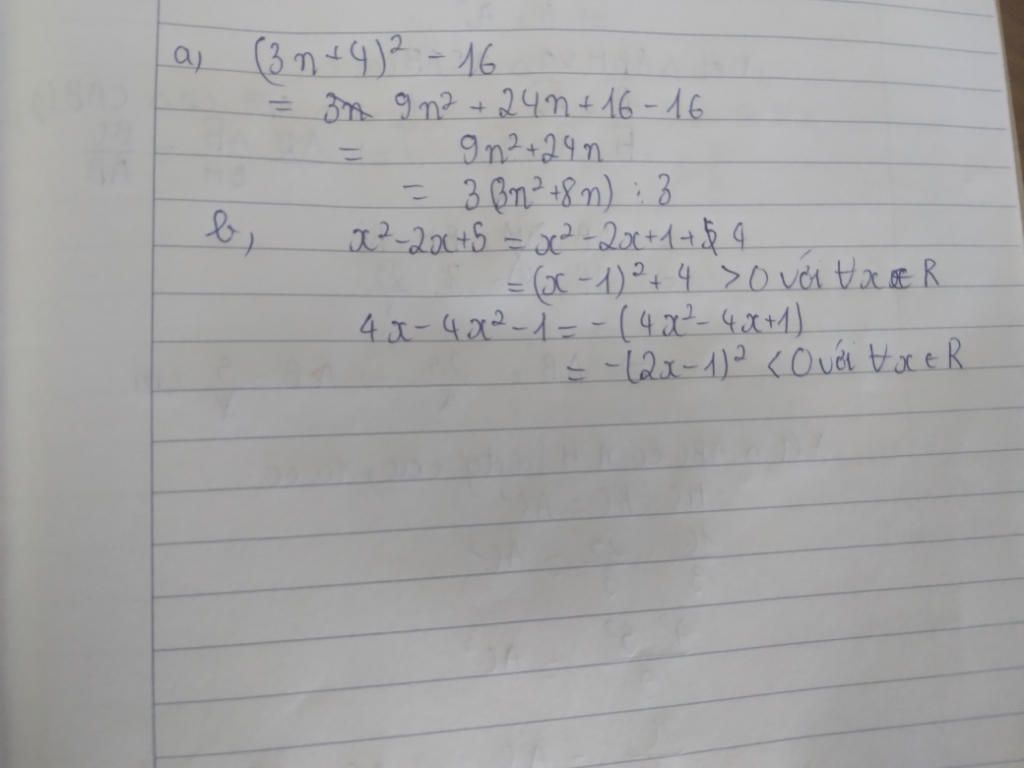 a, (3n+4)² - 16
= 9n² + 24n + 16 - 16
= 9n² + 24n
= 3(3n² + 8n) ⋮ 3
b, x² - 2x + 5 = x² - 2x + 1 + 4
= (x - 1)² + 4 > 0 với ∀x ∈ R
4x - 4x² - 1 = -(4x² - 4x + 1)
= -(2x - 1)² < 0 với ∀x ∈ R